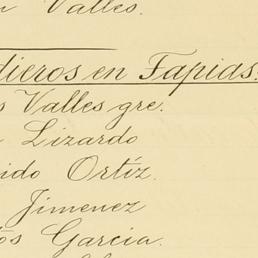 Valles.
dieros en Tapias.
s Valles gre.
Lizardo
ido Ortíz.
Jimenez
tos Garcia.